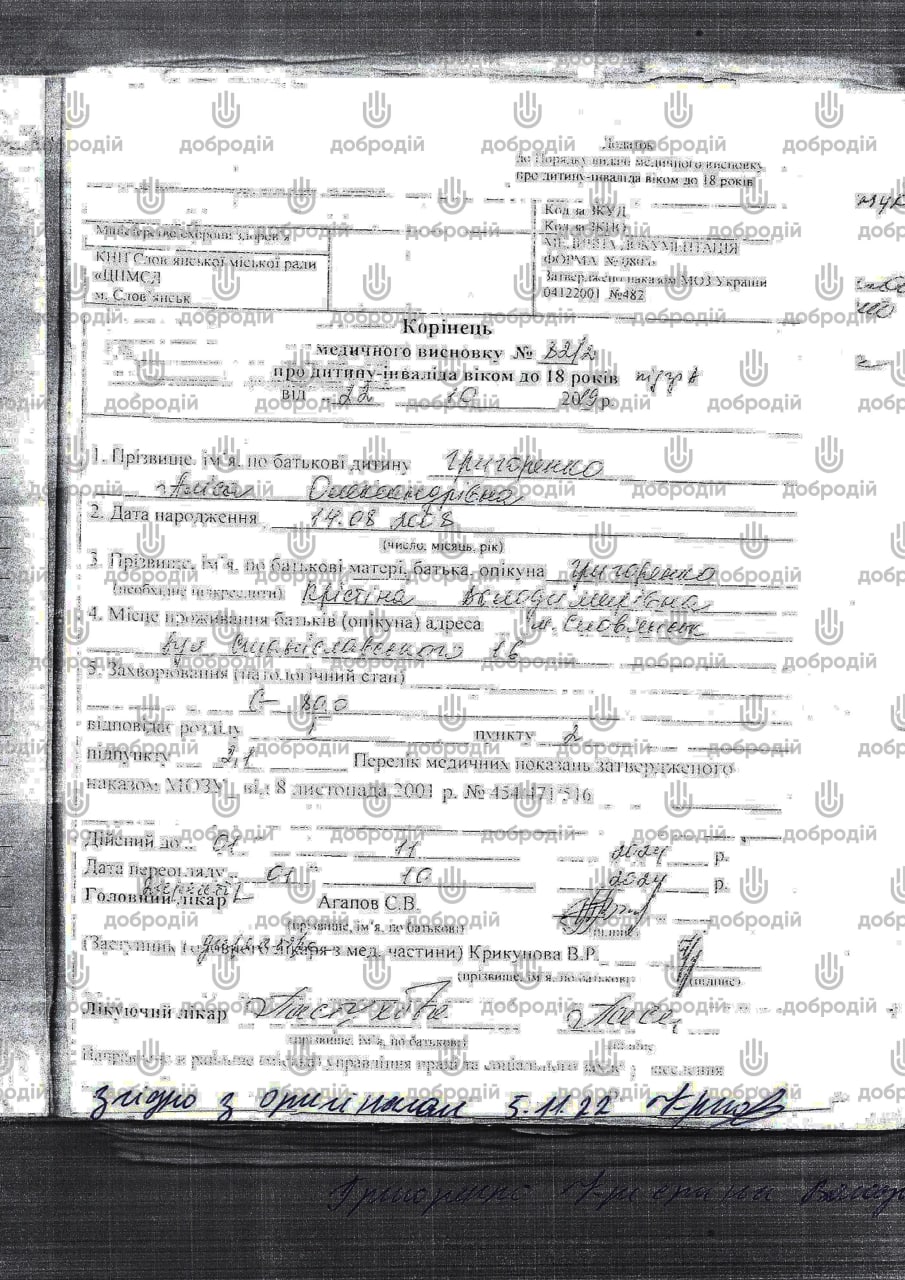 Додаток
до Порядку видачі медичного висновку
про дитину-інваліда віком до 18 років
Міністерство охорони здоров'я
КНП Слов'янської міської ради
«ЦПМСД
м. Слов'янськ
Код за ЗКУД
Код за ЗКПО
МЕДИЧНА ДОКУМЕНТАЦІЯ
ФОРМА №
Затверджено наказом МОЗ України
04122001 №482
Корінець
медичного висновку № 32/2
про дитину-інваліда віком до 18 років підгр А
від 22 10 2019 р.
1. Прізвище, ім'я, по батькові дитину Григоренко
Аліса Олександрівна
2. Дата народження 14.08 2008
(число, місяць, рік)
3. Прізвище, ім'я, по батькові матері, батька, опікуна Григоренко
(необхідне підкреслити) Крістіна Володимирівна
4. Місце проживання батьків (опікуна) адреса м. Словянськ
вул
5. Захворювання (патологічний стан)
G- 80.0
відповідає розділу пункту 2
підпункту 2,1 Перелік медичних показань затвердженого
наказом МОЗУ від 8 листопада 2001 р. № 454/471/516
Дійсний до 01 11 2024 р.
Дата переогляду 01 10 2024 р.
Головний лікар Агапов С.В.
(прізвище, ім'я, по батькові) (підпис)
(Заступник головного лікаря з мед. частини) Крикунова В.Р.
(прізвище, ім'я, по батькові) (підпис)
Лікуючий лікар
(прізвище, ім'я, по батькові) (підпис)
управління праці та соціального захисту населення
Згідно з оригіналом 5.11.22
Григоренко
добродій